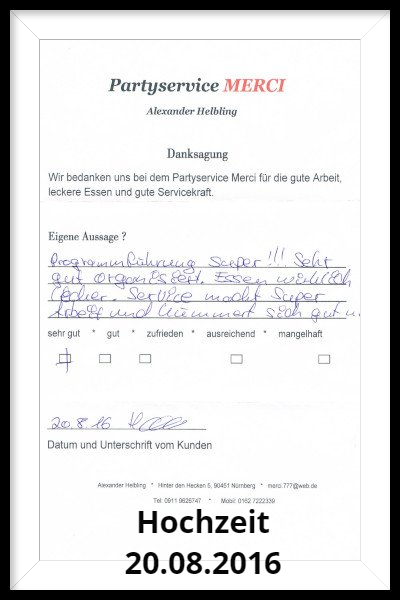 Partyservice MERCI
Alexander Helbling
Danksagung
Wir bedanken uns bei dem Partyservice Merci für die gute Arbeit,
leckere Essen und gute Servicekraft.
Eigene Aussage ?
Programmführung Super!!! Sehr
gut organisiert. Essen wirklich
lecker. Service macht Super
Arbeit und kümmert sich gut u.
sehr gut * gut * zufrieden * ausreichend * mangelhaft
20.8.16
Datum und Unterschrift vom Kunden
Alexander Helbling * Hinter den Hecken 5, 90451 Nürnberg * merci.777@web.de
Tel: 0911 9626747 * Mobil: 0162 7222339
Hochzeit
20.08.2016